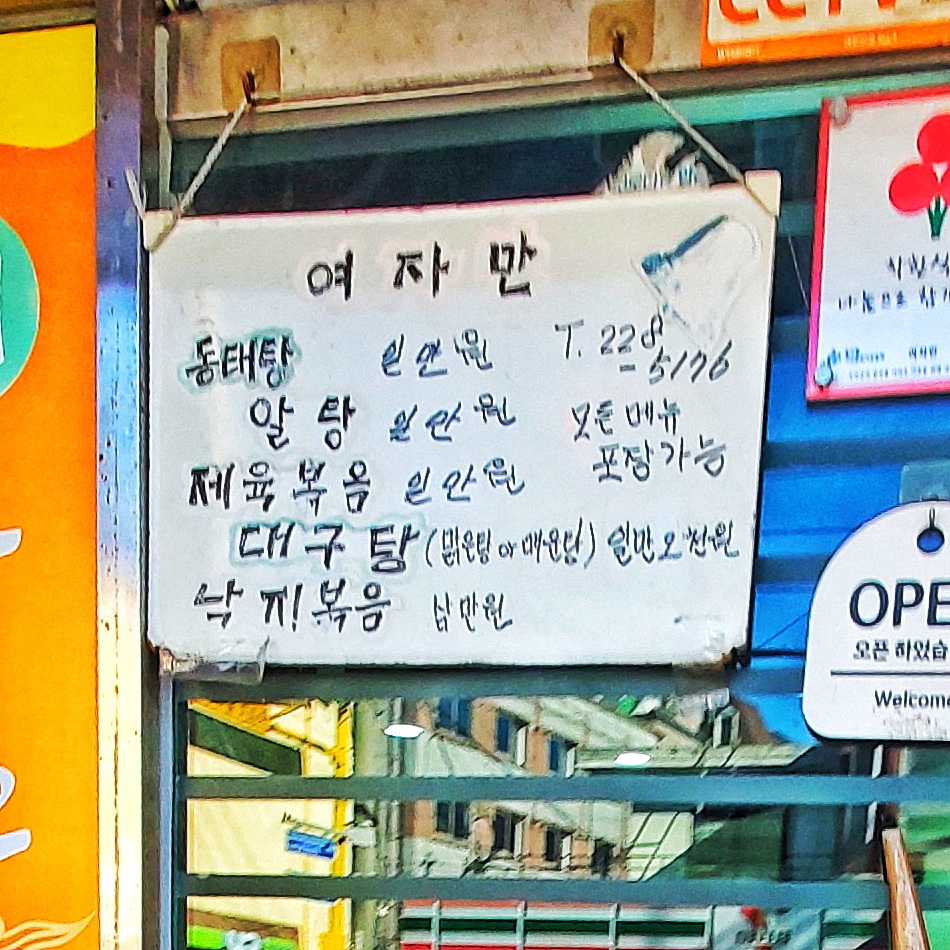 CCTV
여자만
동태탕 일만원 T. 228
-5176
알탕 일만원 모든메뉴
제육볶음 일만원 포장가능
대구탕(맑은탕 or 매운탕) 일만오천원
낙지볶음 삼만원
OPE
오픈 하였습
Welcome